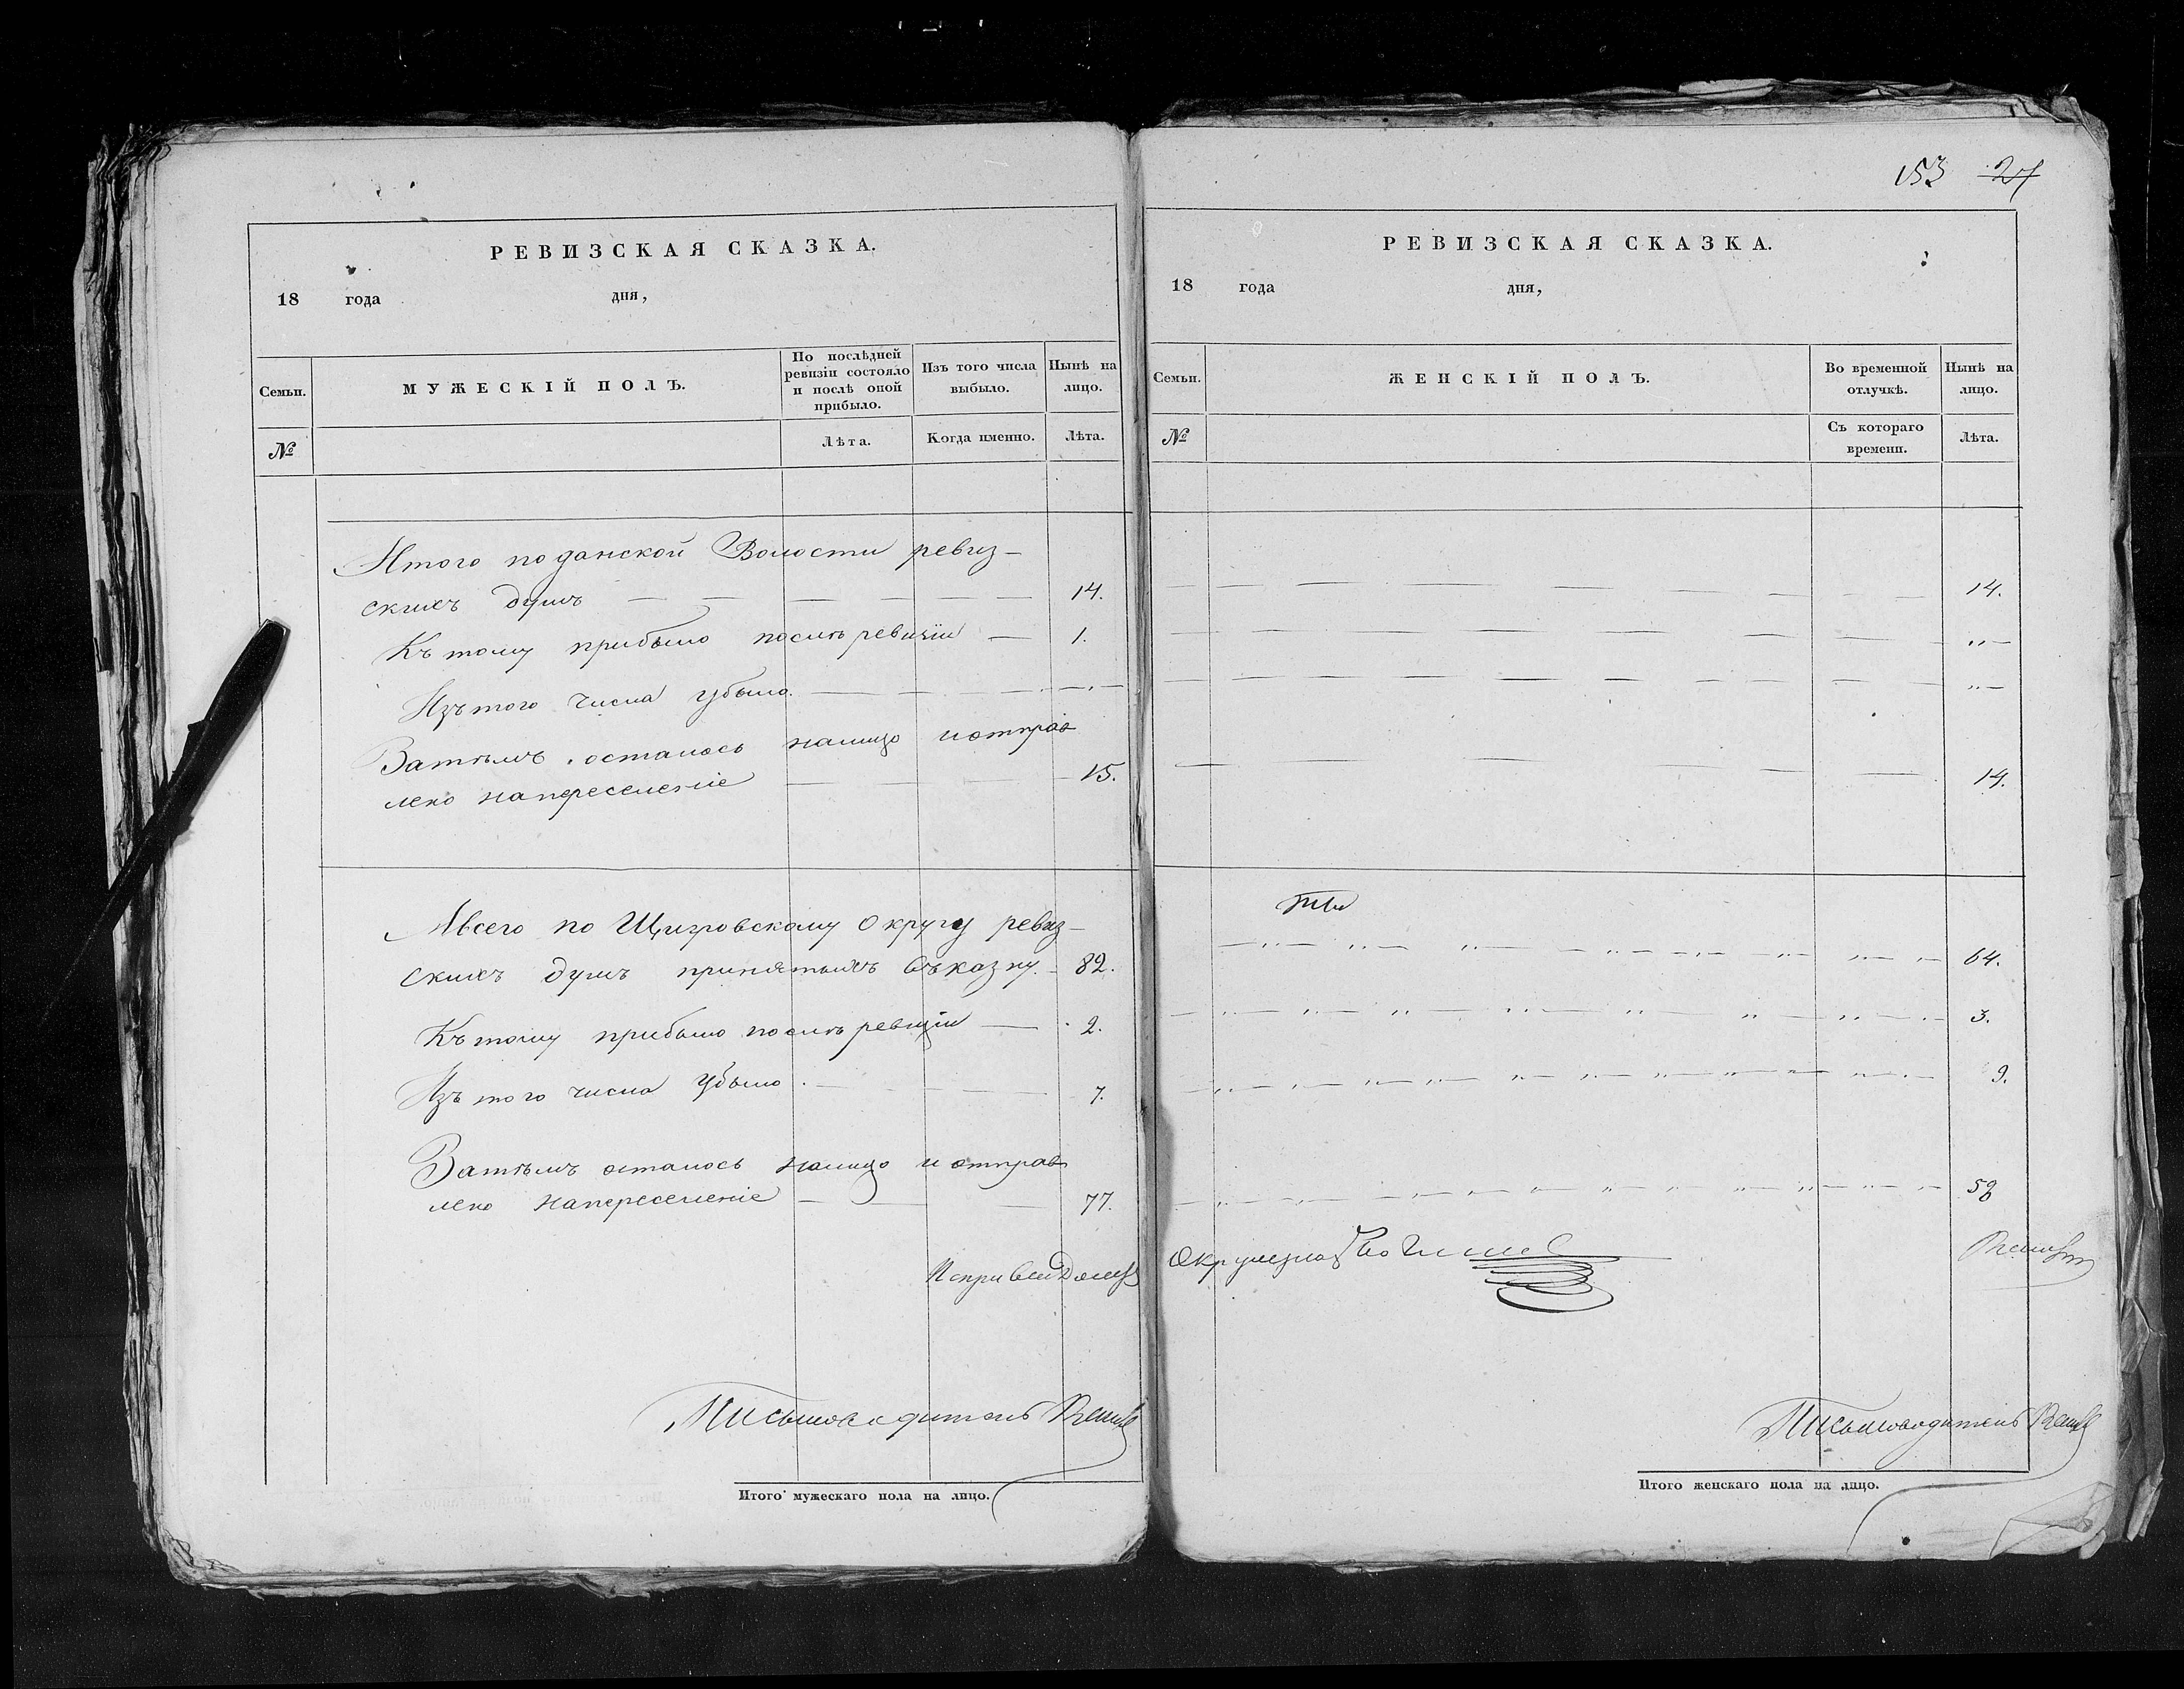 РЕВИЗСКАЯ СКАЗКА.
18 года дня,
Семьи.
МУЖЕСКІЙ ПОЛЪ.
По послѣдней ревизіи состояло и послѣ оной прибыло.
Изъ того числа выбыло.
Нынѣ на лицо.
№
Лѣта.
Когда именно.
Лѣта.
Итого по данской Волости ревиз-
скихъ душъ 14.
Къ тому прибыло послѣ ревизіи 1.
Изъ того числа убыло.
Затѣмъ осталось налицо и отправ
лено на переселеніе 15.
А всего по Щигровскому Округу ревиз-
скихъ душъ принятыхъ въ казну. 82.
Къ тому прибыло послѣ ревизіи 2.
Изъ того числа убыло 7.
Затѣмъ осталось налицо и отправ
лено на переселеніе 77.
Письмоводитель
Итого мужескаго пола на лицо.
153 27
РЕВИЗСКАЯ СКАЗКА.
18 года дня,
Семьи.
ЖЕНСКІЙ ПОЛЪ.
Во временной отлучкѣ.
Нынѣ на лицо.
№
Съ котораго времени.
Лѣта.
14.
14.
64.
3.
9.
58
Письмоводитель
Итого женскаго пола на лицо.